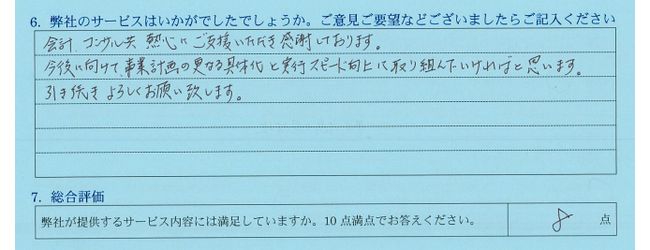 6. 弊社のサービスはいかがでしたでしょうか。ご意見ご要望などございましたらご記入ください
会計、コンサル共 熱心にご支援いただき感謝しております。
今後に向けて、事業計画の更なる具体化と実行スピード向上に取り組んでいければと思います。
引き続きよろしくお願い致します。
7. 総合評価
弊社が提供するサービス内容には満足していますか。10 点満点でお答えください。 8 点